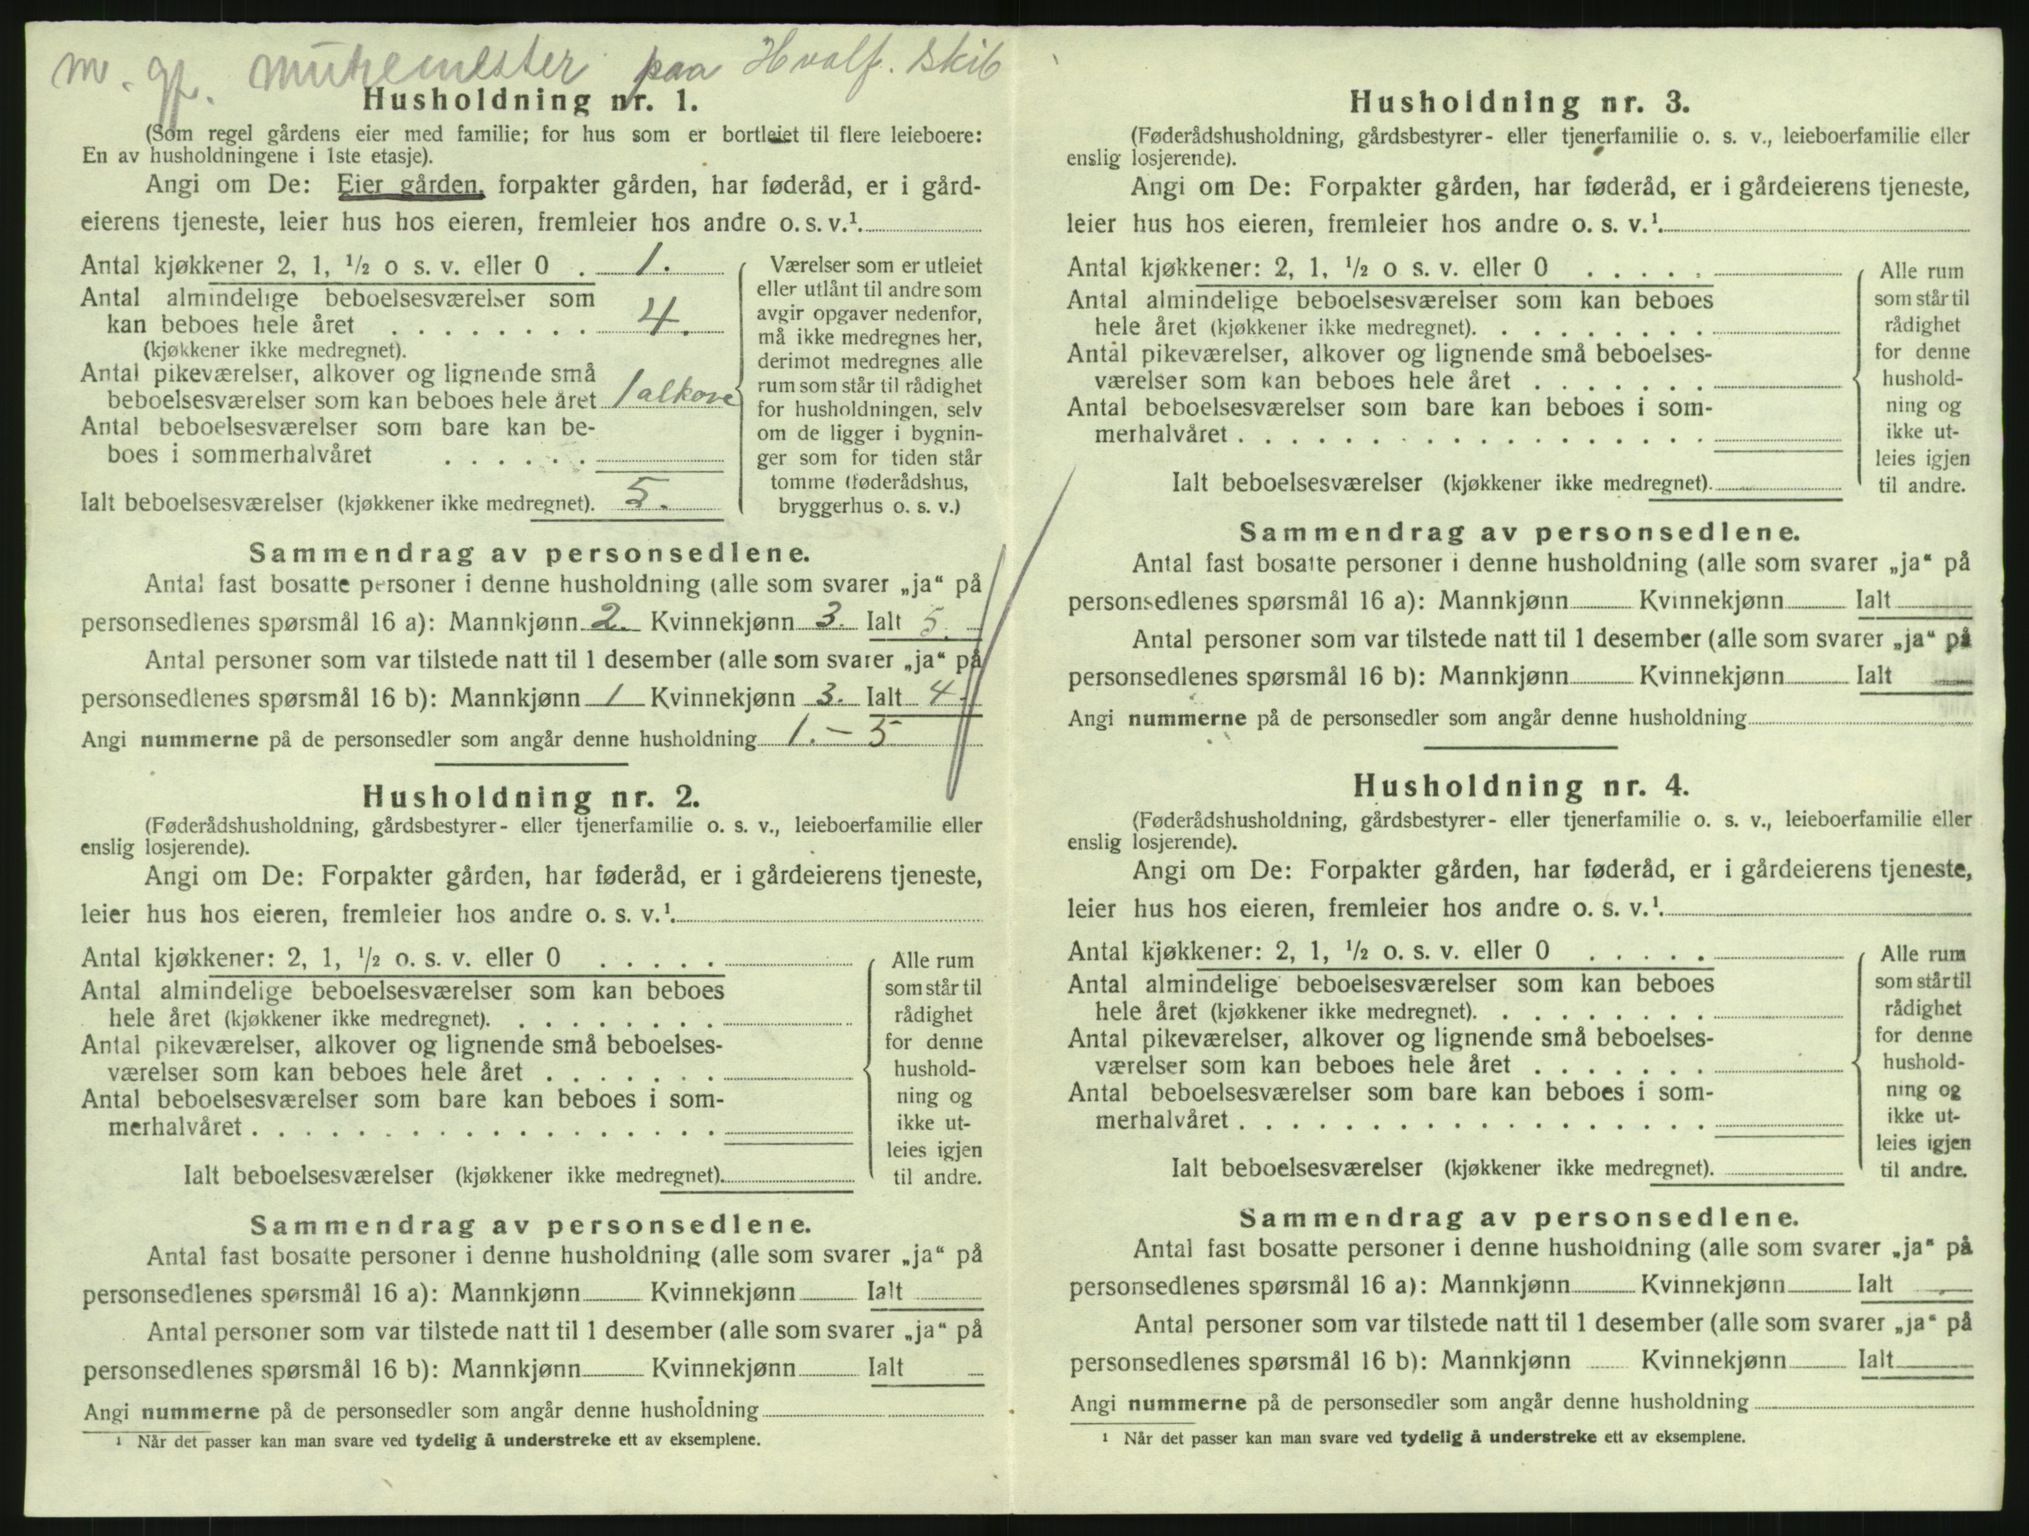 m. gp.            paa Hvalf. Skib
Husholdning nr. 1.
(Som regel gårdens eier med familie; for hus som er bortleiet til flere leieboere:
En av husholdningene i 1ste etasje).
Angi om De: Eier gården, forpakter gården, har føderåd, er i gård-
eierens tjeneste, leier hus hos eieren, fremleier hos andre o. s. v.¹.
Antal kjøkkener 2, 1, ½ o s. v. eller 0 . 1.
Antal almindelige beboelsesværelser som
kan beboes hele året . . . . . . . . 4.
(kjøkkener ikke medregnet).
Antal pikeværelser, alkover og lignende små
beboelsesværelser som kan beboes hele året 1 alkove
Antal beboelsesværelser som bare kan be-
boes i sommerhalvåret . . . . . .
Ialt beboelsesværelser (kjøkkener ikke medregnet). 5.
Værelser som er utleiet
eller utlånt til andre som
avgir opgaver nedenfor,
må ikke medregnes her,
derimot medregnes alle
rum som står til rådighet
for husholdningen, selv
om de ligger i bygnin-
ger som for tiden står
tomme (føderådshus,
bryggerhus o. s. v.)
Sammendrag av personsedlene.
Antal fast bosatte personer i denne husholdning (alle som svarer „ja“ på
personsedlenes spørsmål 16 a): Mannkjønn 2. Kvinnekjønn 3. Ialt 5.
Antal personer som var tilstede natt til 1 desember (alle som svarer „ja“ på
personsedlenes spørsmål 16 b): Mannkjønn 1 Kvinnekjønn 3. Ialt 4.
Angi nummerne på de personsedler som angår denne husholdning 1. – 5
Husholdning nr. 2.
(Føderådshusholdning, gårdsbestyrer- eller tjenerfamilie o. s. v., leieboerfamilie eller
enslig losjerende).
Angi om De: Forpakter gården, har føderåd, er i gårdeierens tjeneste,
leier hus hos eieren, fremleier hos andre o. s. v.¹.
Antal kjøkkener: 2, 1, ½ o. s. v. eller 0 . . . . .
Antal almindelige beboelsesværelser som kan beboes
hele året (kjøkkener ikke medregnet). . . . . . . . .
Antal pikeværelser, alkover og lignende små beboelses-
værelser som kan beboes hele året . . . . . . .
Antal beboelsesværelser som bare kan beboes i som-
merhalvåret . . . . . . . . . . . . . . . . . .
Ialt beboelsesværelser (kjøkkener ikke medregnet).
Alle rum
som står til
rådighet
for denne
hushold-
ning og
ikke ut-
leies igjen
til andre.
Sammendrag av personsedlene.
Antal fast bosatte personer i denne husholdning (alle som svarer „ja“ på
personsedlenes spørsmål 16 a): Mannkjønn Kvinnekjønn Ialt
Antal personer som var tilstede natt til 1 desember (alle som svarer „ja“ på
personsedlenes spørsmål 16 b): Mannkjønn Kvinnekjønn Ialt
Angi nummerne på de personsedler som angår denne husholdning
¹ Når det passer kan man svare ved tydelig å understreke ett av eksemplene.
Husholdning nr. 3.
(Føderådshusholdning, gårdsbestyrer- eller tjenerfamilie o. s. v., leieboerfamilie eller
enslig losjerende).
Angi om De: Forpakter gården, har føderåd, er i gårdeierens tjeneste,
leier hus hos eieren, fremleier hos andre o. s. v.¹.
Antal kjøkkener: 2, 1, ½ o s. v. eller 0 . . . . .
Antal almindelige beboelsesværelser som kan beboes
hele året (kjøkkener ikke medregnet). . . . . . . . .
Antal pikeværelser, alkover og lignende små beboelses-
værelser som kan beboes hele året . . . . . . .
Antal beboelsesværelser som bare kan beboes i som-
merhalvåret . . . . . . . . . . . . . . . . . .
Ialt beboelsesværelser (kjøkkener ikke medregnet).
Alle rum
som står til
rådighet
for denne
hushold-
ning og
ikke ut-
leies igjen
til andre.
Sammendrag av personsedlene.
Antal fast bosatte personer i denne husholdning (alle som svarer „ja“ på
personsedlenes spørsmål 16 a): Mannkjønn Kvinnekjønn Ialt
Antal personer som var tilstede natt til 1 desember (alle som svarer „ja“ på
personsedlenes spørsmål 16 b): Mannkjønn Kvinnekjønn Ialt
Angi nummerne på de personsedler som angår denne husholdning
Husholdning nr. 4.
(Føderådshusholdning, gårdsbestyrer- eller tjenerfamilie o. s. v., leieboerfamilie eller
enslig losjerende).
Angi om De: Forpakter gården, har føderåd, er i gårdeierens tjeneste,
leier hus hos eieren, fremleier hos andre o. s. v.¹.
Antal kjøkkener: 2, 1, ½ o. s. v. eller 0 . . . . .
Antal almindelige beboelsesværelser som kan beboes
hele året (kjøkkener ikke medregnet). . . . . . . . .
Antal pikeværelser, alkover og lignende små beboelses-
værelser som kan beboes hele året . . . . . . .
Antal beboelsesværelser som bare kan beboes i som-
merhalvåret . . . . . . . . . . . . . . . . . .
Ialt beboelsesværelser (kjøkkener ikke medregnet).
Alle rum
som står til
rådighet
for denne
hushold-
ning og
ikke ut-
leies igjen
til andre.
Sammendrag av personsedlene.
Antal fast bosatte personer i denne husholdning (alle som svarer „ja“ på
personsedlenes spørsmål 16 a): Mannkjønn Kvinnekjønn Ialt
Antal personer som var tilstede natt til 1 desember (alle som svarer „ja“ på
personsedlenes spørsmål 16 b): Mannkjønn Kvinnekjønn Ialt
Angi nummerne på de personsedler som angår denne husholdning
¹ Når det passer kan man svare ved tydelig å understreke ett av eksemplene.